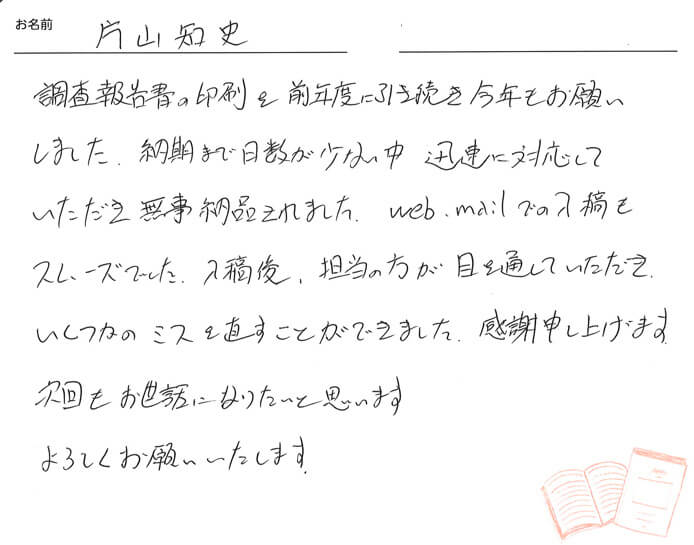 お名前 片山知史
調査報告書の印刷を前年度に引き続き今年もお願い
しました。納期まで日数が少ない中 迅速に対応して
いただき無事納品されました。web.mailでの入稿も
スムーズでした。入稿後、担当の方が目を通していただき、
いくつかのミスを直すことができました。感謝申し上げます
次回もお世話になりたいと思います
よろしくお願いいたします。